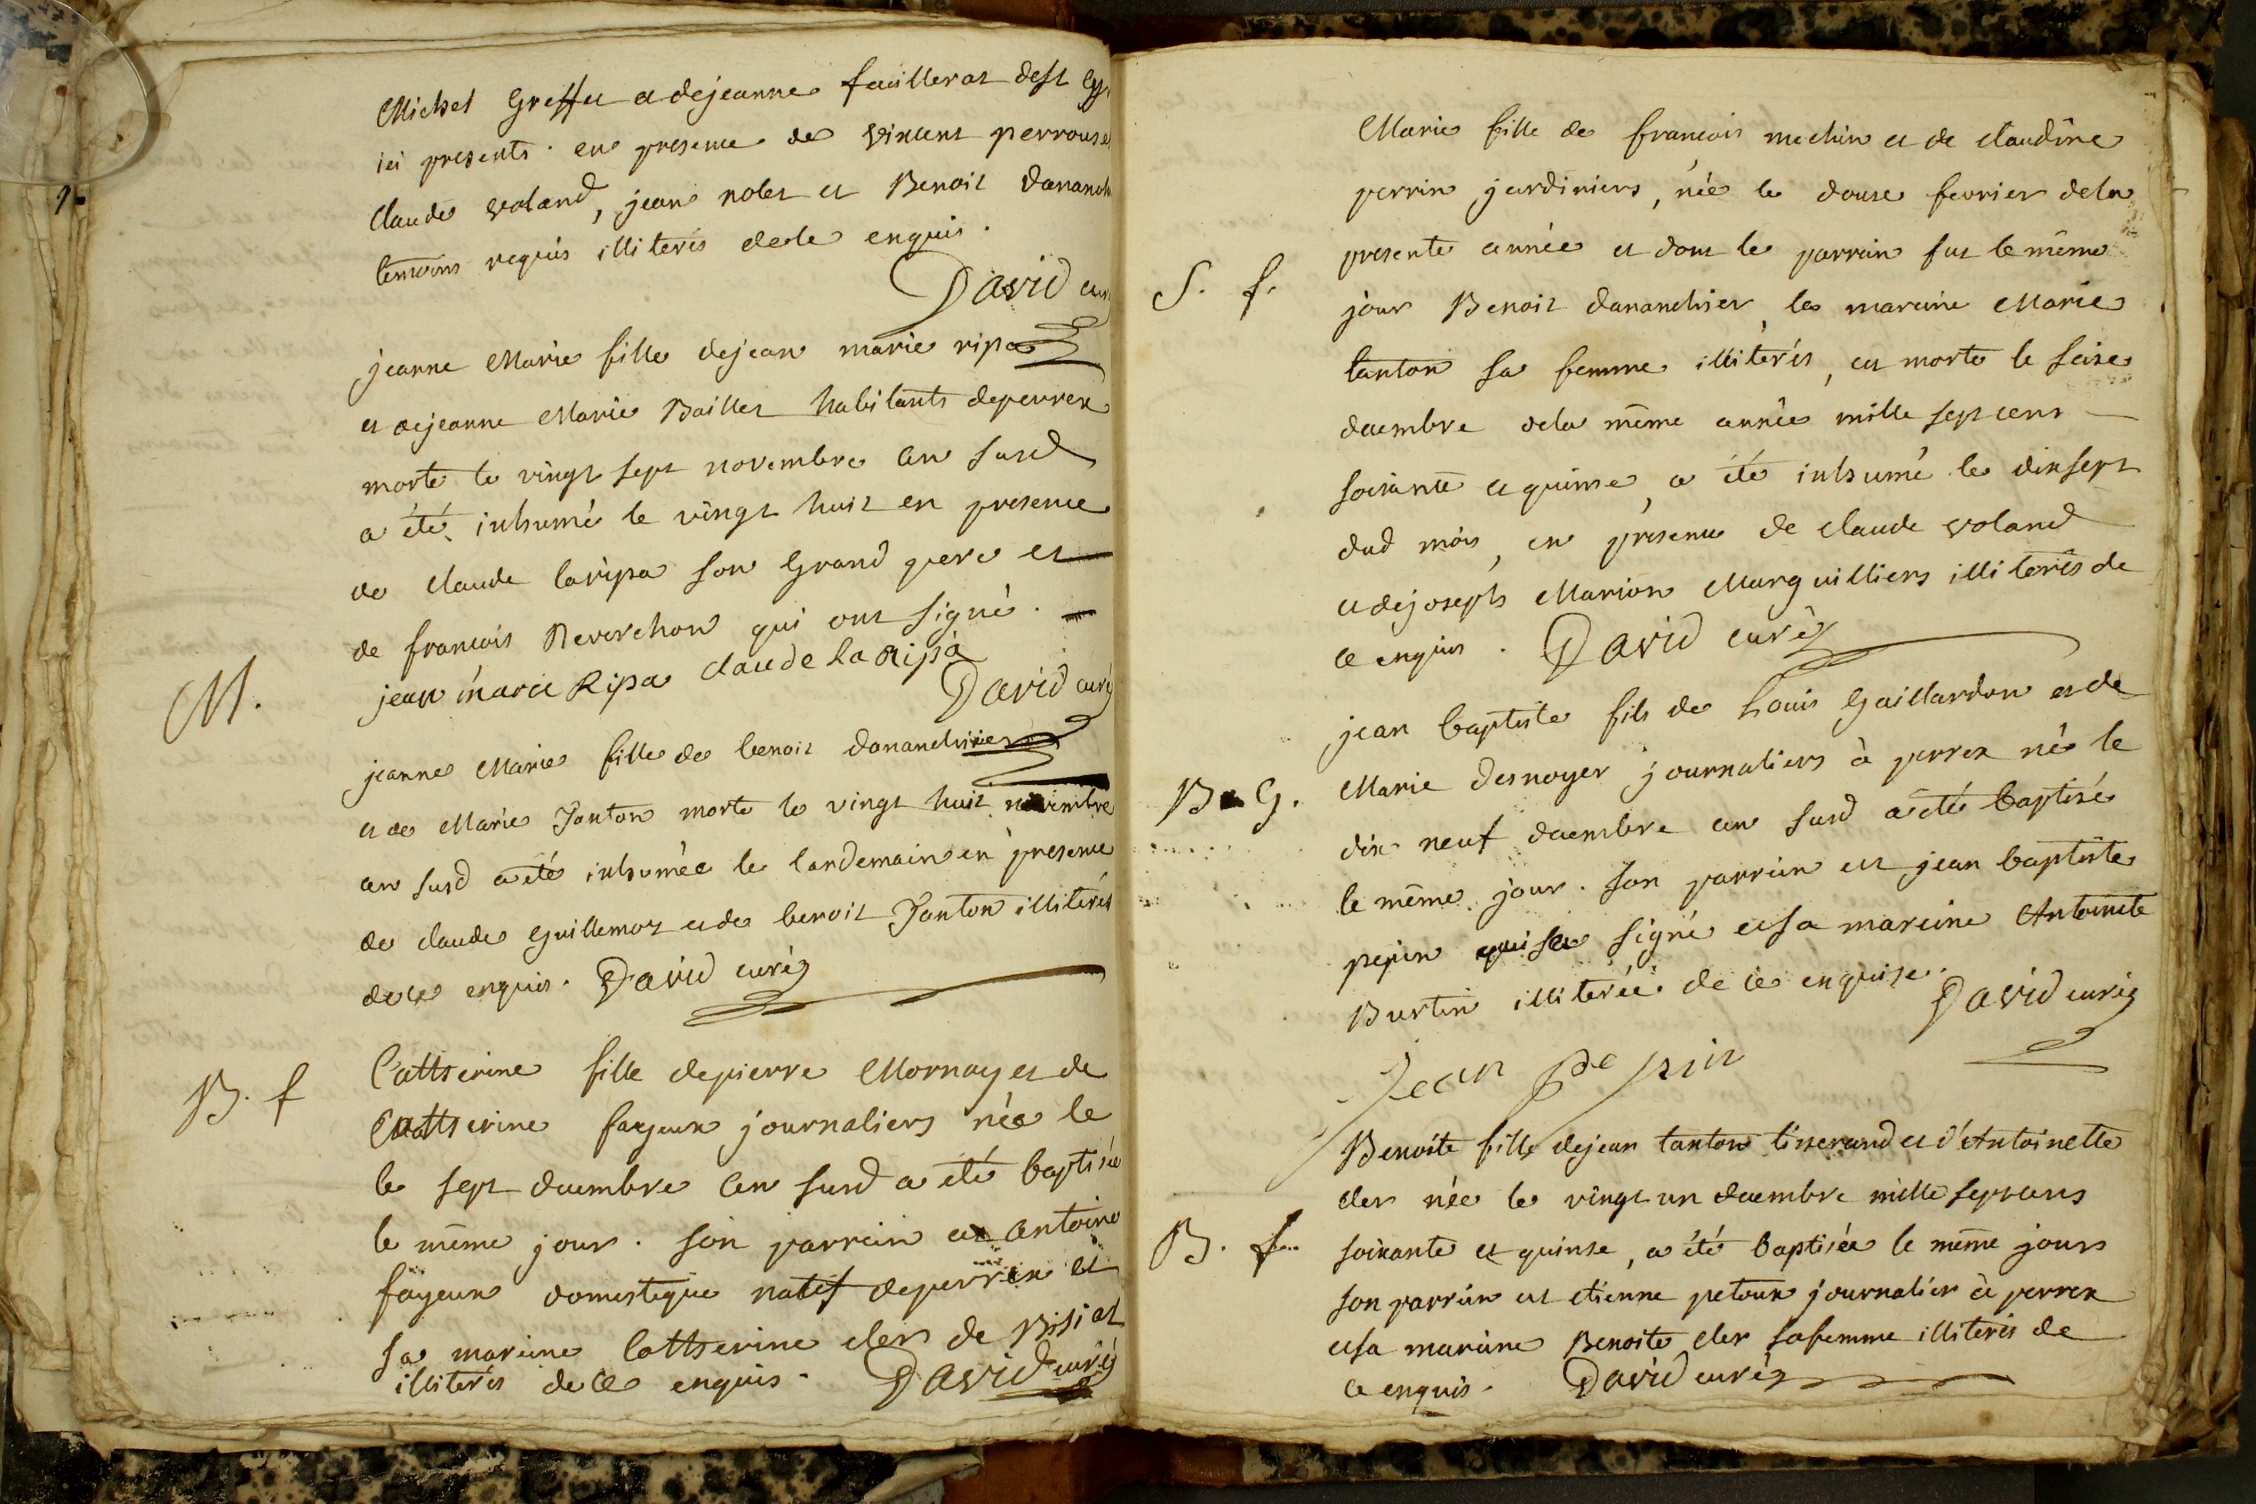 Michel Greffet et de jeanne feuillerat de st
ici presents. en presence de vincent perrouse
Claude voland, jean nolet et Benoit
temoins requis illiterés de ce enquis.
David
jeanne Marie fille de jean marie ripa
et de jeanne Marie Baillet habitants de perrex
morte le vingt sept novembre an susd
a été inhumé le vingt huit en presence
de claude laripa son Grand pere et
de francois Reverchon qui ont signé.
jean marie Ripa claude la Ripa
M.
David curé
jeanne Marie fille de benoit Dananchier
et de Marie Tanton morte le vingt huit novembre
an susd a été inhumée le landemain en presence
de claude Guillemot et de benoit Tanton illiterés
de ce enquis. David curé
B. f
Catherine fille de pierre Mornay et de
Catherine fayeux journaliers née le
le sept decembre an susd a été baptisée
le même jour. son parrein est antoine
fayeux domestique natif de perrex et
sa mareine Catherine cler de Bisiat
illiterés de ce enquis. David curé
Marie fille de francois mechin et de claudine
perrin jardiniers, née le douse fevrier de la
presente année et dont le parrain fut le même
S. f.
jour Benoit dananchier, la mareine Marie
tanton sa femme illiterés, est morte le seise
decembre de la même année mille sept cens
soixante et quinse, a été inhumé le dix sept
dud mois, en presence de claude voland
et de joseph Marion Marguilliers illiterés de
ce enquis. David curé
jean baptiste fils de Louis Gaillardon et de
B. G.
Marie desnoyer journaliers à perrex né le
dix neuf decembre an susd a été baptisé
le même jour. son parrein est jean baptiste
pepin qui a signé et sa mareine Antoinete
Burtin illiterée de ce enquise.
David curé
Jean pepin
Benoite fille de jean tanton tisserand et d'Antoinette
cler née le vingt un decembre mille sept cens
B. f.
soixante et quinse, a été baptisée le même jours
son parrein est etienne petoux journalier à perrex
et sa mareine Benoite cler sa femme illiterés de
ce enquis. David curé